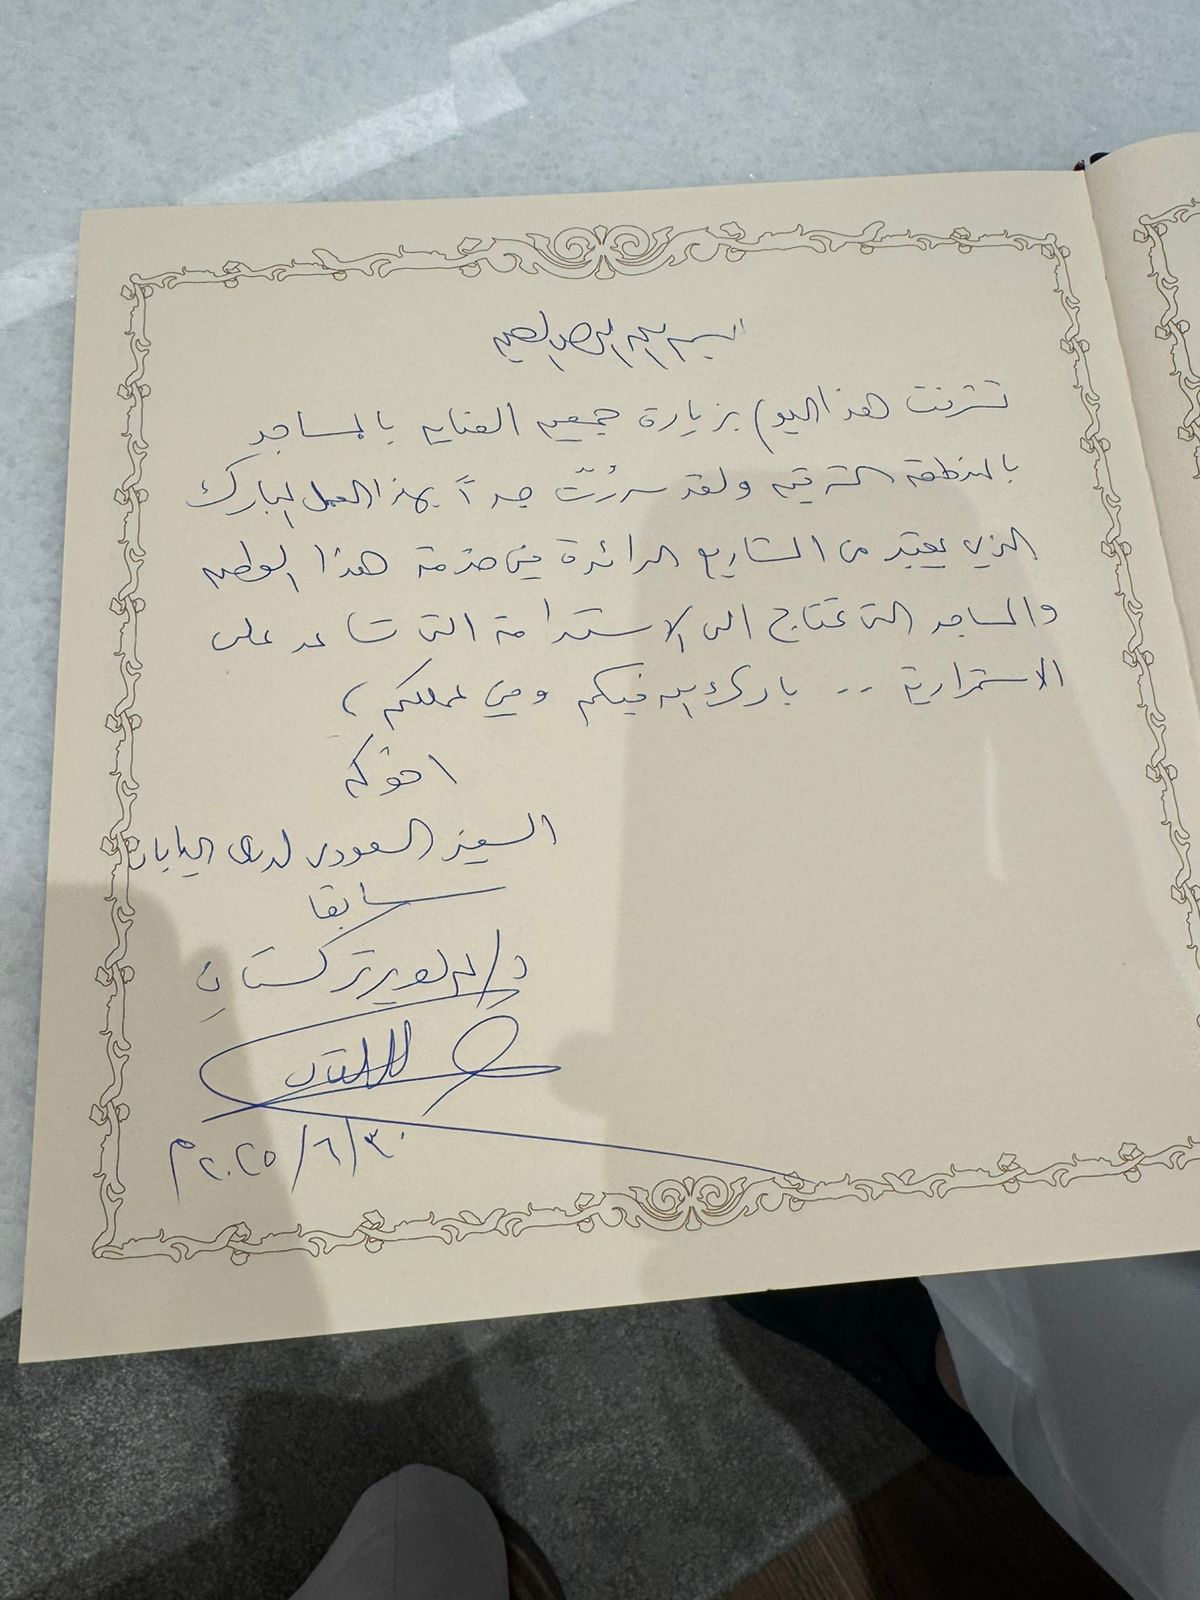 بسم الله الرحمن الرحيم
تشرفت هذا اليوم بزيارة جمعيه العنايه بالمساجد
بالمنطقه الشرقيه ولقد سررت جداً بهذا العمل المبارك
الذي يعتبر من المشاريع الرائدة في خدمة هذا الوطن
والمساجد التي تحتاج الى الاستدامة التي تساعد على
الاستمرارية .. بارك الله فيكم وفي عملكم ،
اخوكم
السفير السعودي لدى اليابان
سابقا
د/ عبدالعزيز تركستاني
٣٠/٦/٢٠٢٥م